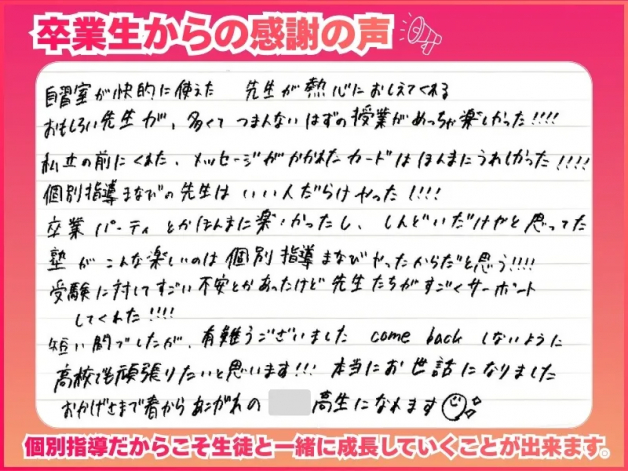 卒業生からの感謝の声
自習室が快的に使えた 先生が熱心におしえてくれる
おもしろい先生が、多くてつまんないはずの授業がめっちゃ楽しかった!!!!
私立の前にくれた、メッセージがかかれたカードはほんまにうれしかった!!!!
個別指導まなびの先生はいい人だらけやった!!!!
卒業パーティとかほんまに楽しかったし、しんどいだけやと思ってた
塾がこんな楽しいのは個別指導まなびやったからだと思う!!!!
受験に対してすごい不安とかあったけど先生たちがすごくサーポート
してくれた!!!!
短い間でしたが、有難うございました come back しないように
高校でも頑張りたいと思います!!! 本当にお世話になりました
おかげさまで春からあこがれの 高生になれます
個別指導だからこそ生徒と一緒に成長していくことが出来ます。